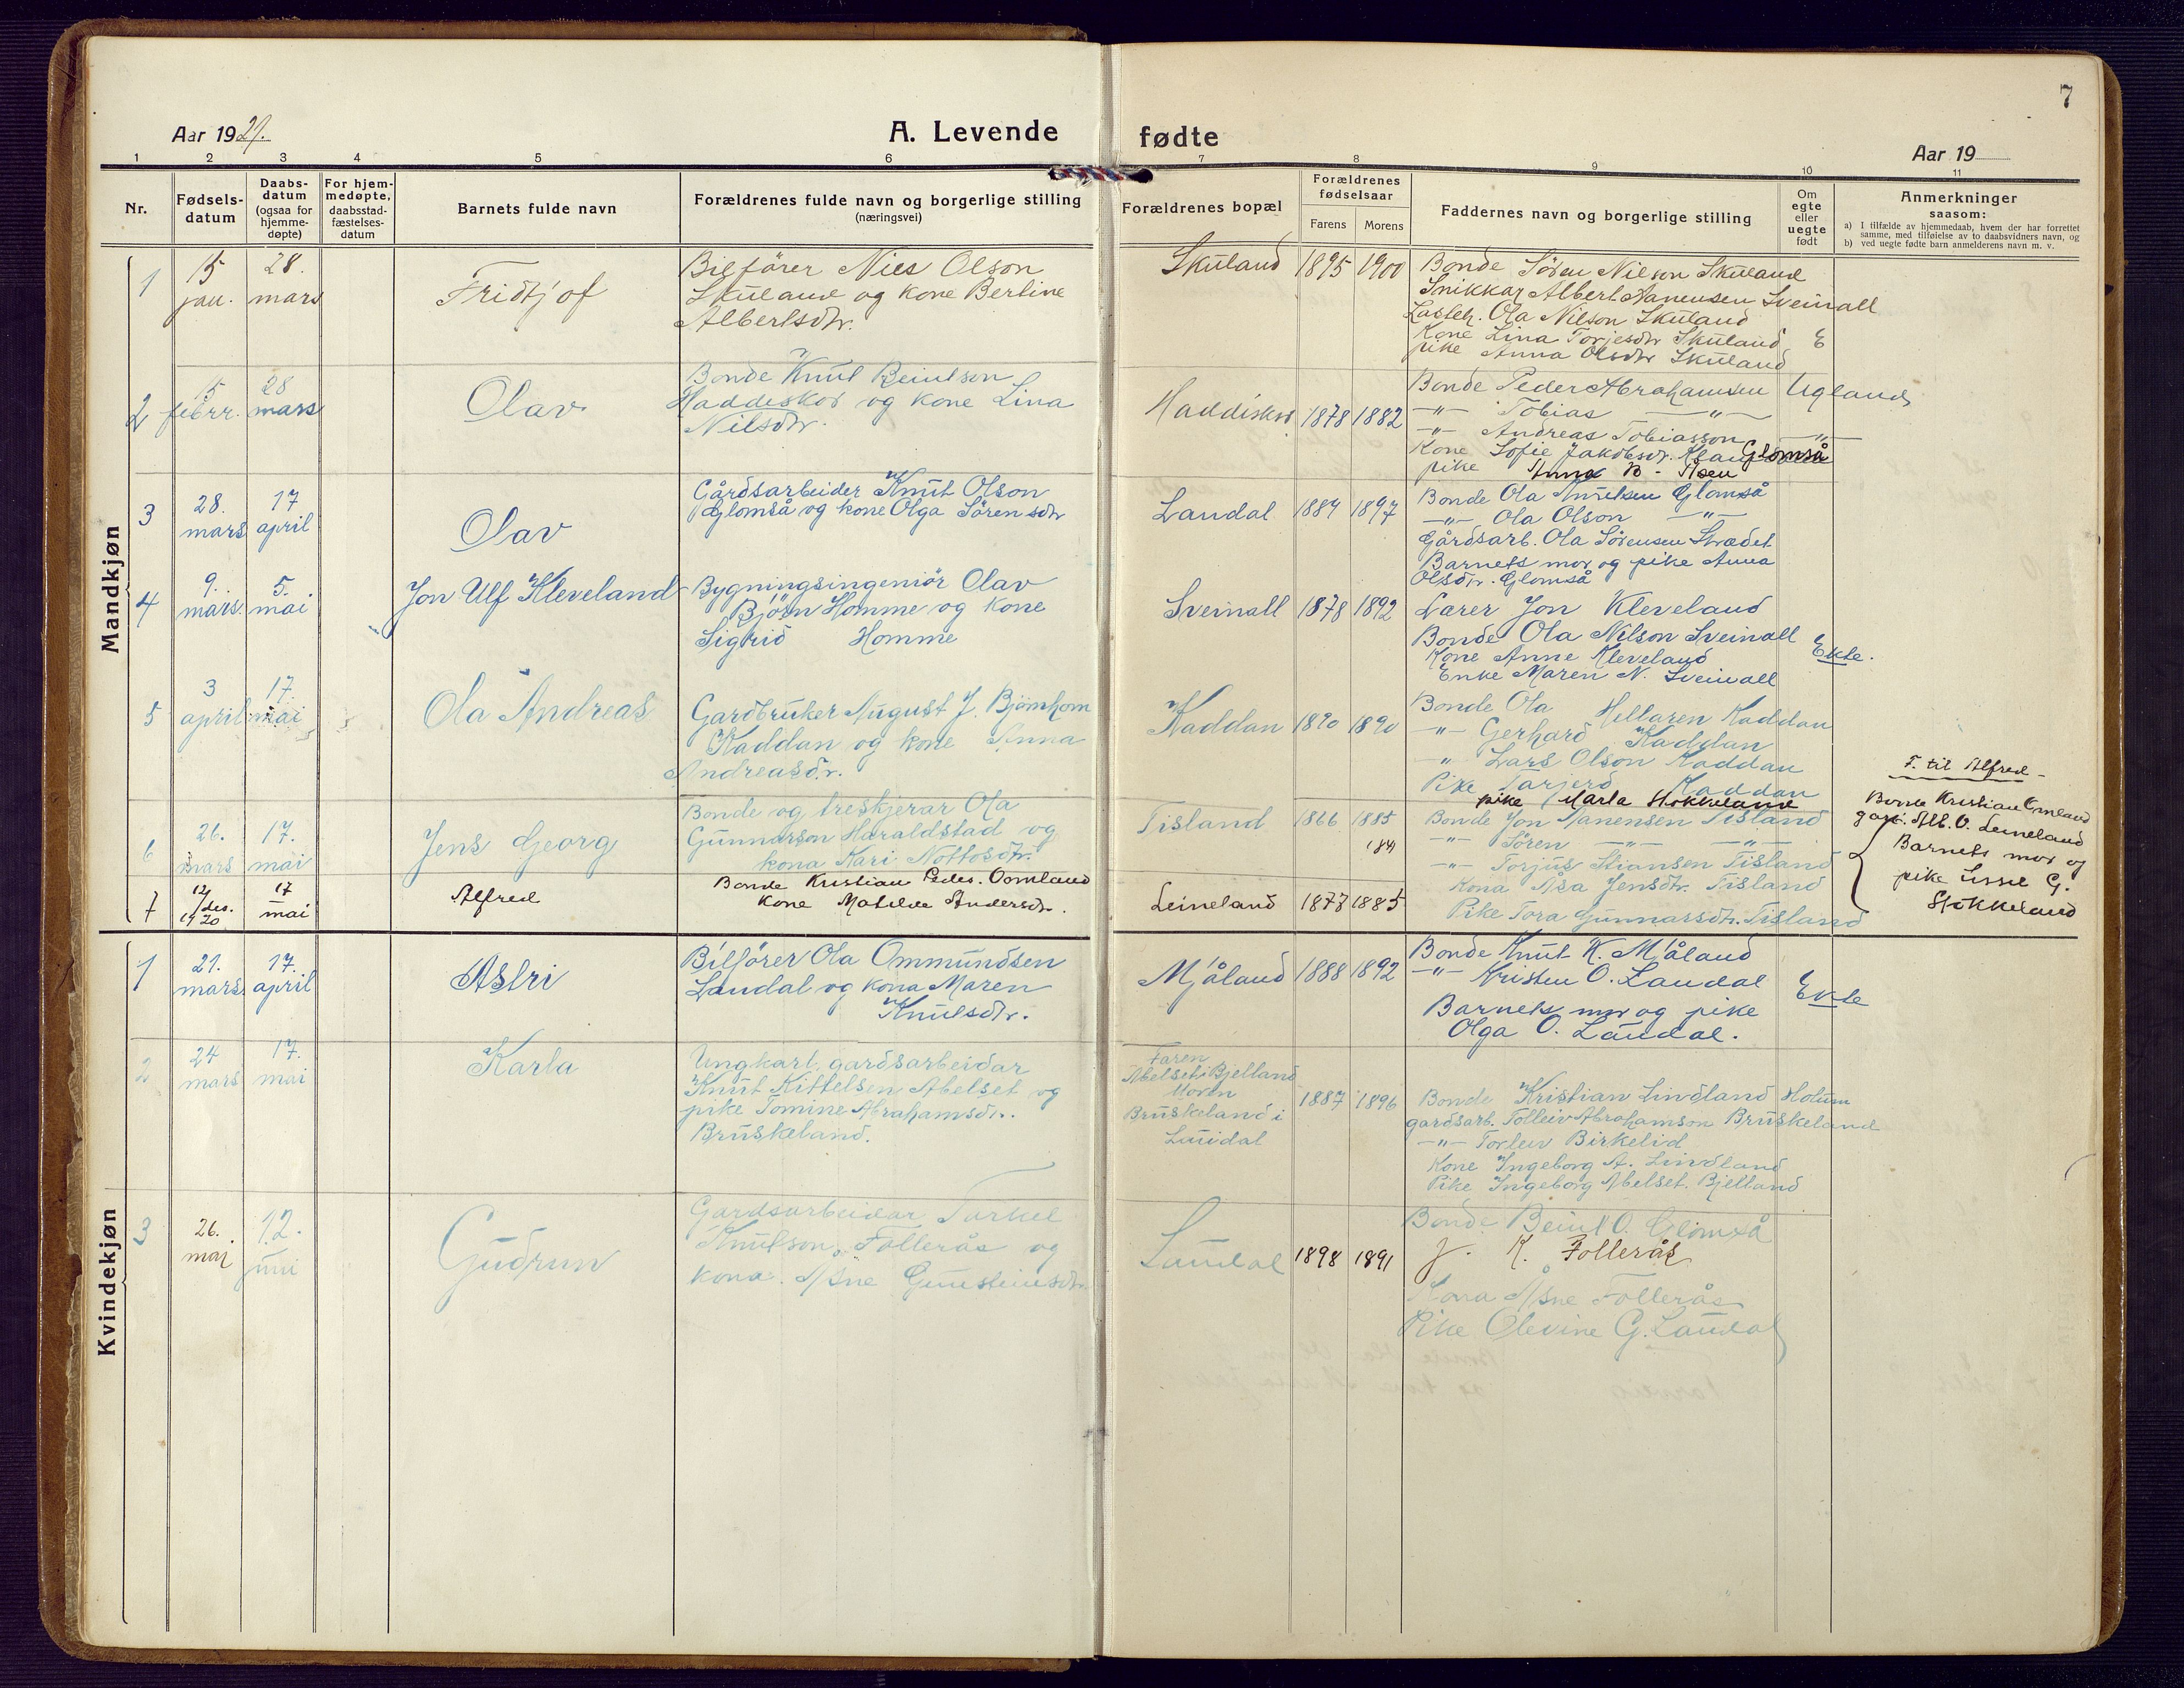 7
Aar 1921.
A. Levende fødte
Aar 19
1 2 3 4 5 6 7 8 9 10 11
Nr.
Fødsels-
datum
Daabs-
datum
(ogsaa for
hjemme-
døpte)
For hjem-
medøpte,
daabsstad-
fæstelses-
datum
Barnets fulde navn
Forældrenes fulde navn og borgerlige stilling
(næringsvei)
Forældrenes bopæl
Forældrenes
fødselsaar
Farens Morens
Faddernes navn og borgerlige stilling
Om
egte
eller
uegte
født
Anmerkninger
saasom:
a) I tilfælde av hjemmedaab, hvem der har forrettet
samme, med tilføielse av to daabsvidners navn, og
b) ved uegte fødte barn anmelderens navn m. v.
Mandkjøn
1
15
jan.
28.
mars
Fridtjof
Bilfører Nils Olson
Skuland og kone Bertine
Albertsdtr.
Skuland 1895 1900
Bonde Sören Nilson Skuland
Snikkar Albert Hanensen Sveinall
Ola Nilson Skuland
Kone Lina Torjesdtr Skuland
pike Anna Olsdtr Skuland
E
2
15
febrr.
28
mars
Olav
Bonde Knut Beintson
Haddeskos og kone Lina
Nilsdtr.
Haddiskos 1878 1882
Bonde Peder Abrahamsen Ugland
-"- Tobias -"-
-"- Andreas Tobiasson -"-
Kone Sofie Jakobsdr. Glomså
pike Anna B -
3
28.
mars
17
april
Olav
Gårdsarbeider Knut Olson
Glomså og kone Olga Sörensdtr
Laudal 1884 1897
Bonde Ola Knutsen Glomså
-"- Ola Olson -"-
Gårdsarb. Ola Sörensen Strædet
Barnets mor og pike Anna
Olsdtr. Glomså
4
9.
mars.
5.
mai
Jon Ulf Kleveland
Bygningsingeniör Olav
Björn Homme og kone
Sigrid Homme
Sveinall 1878 1892
Lærer Jon Kleveland
Bonde Ola Nilson Sveinall
Kone Anne Kleveland
Enke Maren N. Sveinall
Ekte.
5
3
april
17.
mai
Ola Andreas
Gardbruker August J. Björnhom
Kaddan og kone Anna
Andreasdr.
Kaddan 1890 1890
Bonde Ola Hellaren Kaddan
-"- Gerhard Kaddan
-"- Lars Olson Kaddan
Pike Tarjerd Kaddan
pike Marta Stokkeland
6
26.
mars
17.
mai
Jens Georg
Bonde og treskjerar Ola
Gunnarson Haraldstad og
kona Kari Nottosdtr.
Tisland 1866 1885
184
Bonde Jon Hanensen Tisland
-"- Sören -"- -"-
-"- Torjus Stiansen Tisland
Kona Åsa Jensdtr. Tisland
Pike Tora Gunnarsdtr. Tisland
7
12/des.
1920
17
mai
Alfred
Bonde Kristian Peder. Oomland
Kone Matilde Andersdr.
Leineland 1878 1885
F. til Alfred -
Bonde Kristian Omland
Alb. O. Leineland
Barnets mor og
pike Lissel G.
Stokkeland
Kvindekjøn
1
21.
mars
17.
april
Astri
Bilförer Ola Ommundsen
Laudal og kona Maren
Knutsdtr.
Mjåland 1888 1892
Bonde Knut K. Mjåland
-"- Kristen O. Laudal
Barnets mor og pike
Olga O. Laudal.
Ekte
2
24
mars
17.
mai
Karla
Ungkarl, gardsarbeidar
Knut Kittelsen Abelset og
pike Tomine Abrahamsdr.
Brüskeland.
Faren
Abelset i Bjelland
Moren
Brüskeland i
Laudal
1887 1896
Bonde Kristian Lindland Holum
gardsarb. Tolleiv Abrahamson Brüskeland
-"- Torleiv Birkelid
Kone Ingeborg A. Lindland
Pike Ingeborg Abelset. Bjelland
3
26.
mai
12.
juni
Gudrun
Gardsarbeidar Torkel
Knutson Follerås og
kona. Åsne Gunsteinsdtr
Laudal 1898 1891
Bonde Beint O. Glomså
J. K. Follerås
Kona Åsne Follerås
Pike Olevine G. Laudal